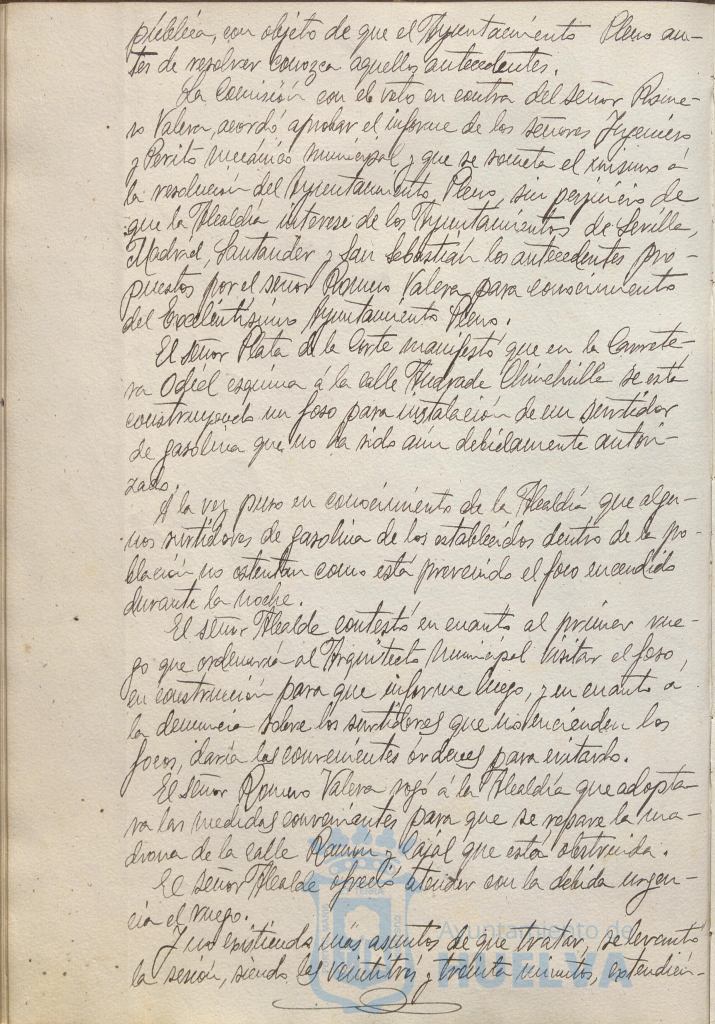 pública, con objeto de que el Ayuntamiento Pleno an-
tes de resolver conozca aquellos antecedentes.
La Comisión con el voto en contra del señor Rome-
ro Valera, acordó aprobar el informe de los señores Ingeniero
y Perito mecánico municipal y que se someta el mismo á
la resolución del Ayuntamiento Pleno, sin perjuicio de
que la Alcaldía interese de los Ayuntamientos de Sevilla,
Madrid, Santander y San Sebastián los antecedentes pro-
puestos por el señor Romero Valera, para conocimiento
del Excelentísimo Ayuntamiento Pleno.
El señor Plata de la Corte manifestó que en la Carrete-
ra Odiel esquina á la calle Andrade Chinchilla se está
construyendo un foso para instalación de un surtidor
de gasolina que no ha sido aun debidamente autori-
zado.
A la vez puso en conocimiento de la Alcaldía que algu-
nos surtidores de gasolina de los establecidos dentro de la po-
blación no ostentan como está prevenido el foco encendido
durante la noche.
El señor Alcalde contestó en cuanto al primer rue-
go que ordenaría al Arquitecto municipal visitar el foso,
en construcción para que informe luego, y en cuanto a
la denuncia sobre los surtidores que no encienden los
focos, daría las convenientes ordenes para evitarlo.
El señor Romero Valera rogó á la Alcaldía que adopta-
ra las medidas convenientes para que se repare la ma-
drona de la calle Ramón y Cajal que está obstruida.
El señor Alcalde ofreció atender con la debida urgen-
cia el ruego.
Y no existiendo más asuntos de que tratar, se levantó
la sesión, siendo las veintitrés y treinta minutos, extendién-
Ayuntamiento de
HUELVA